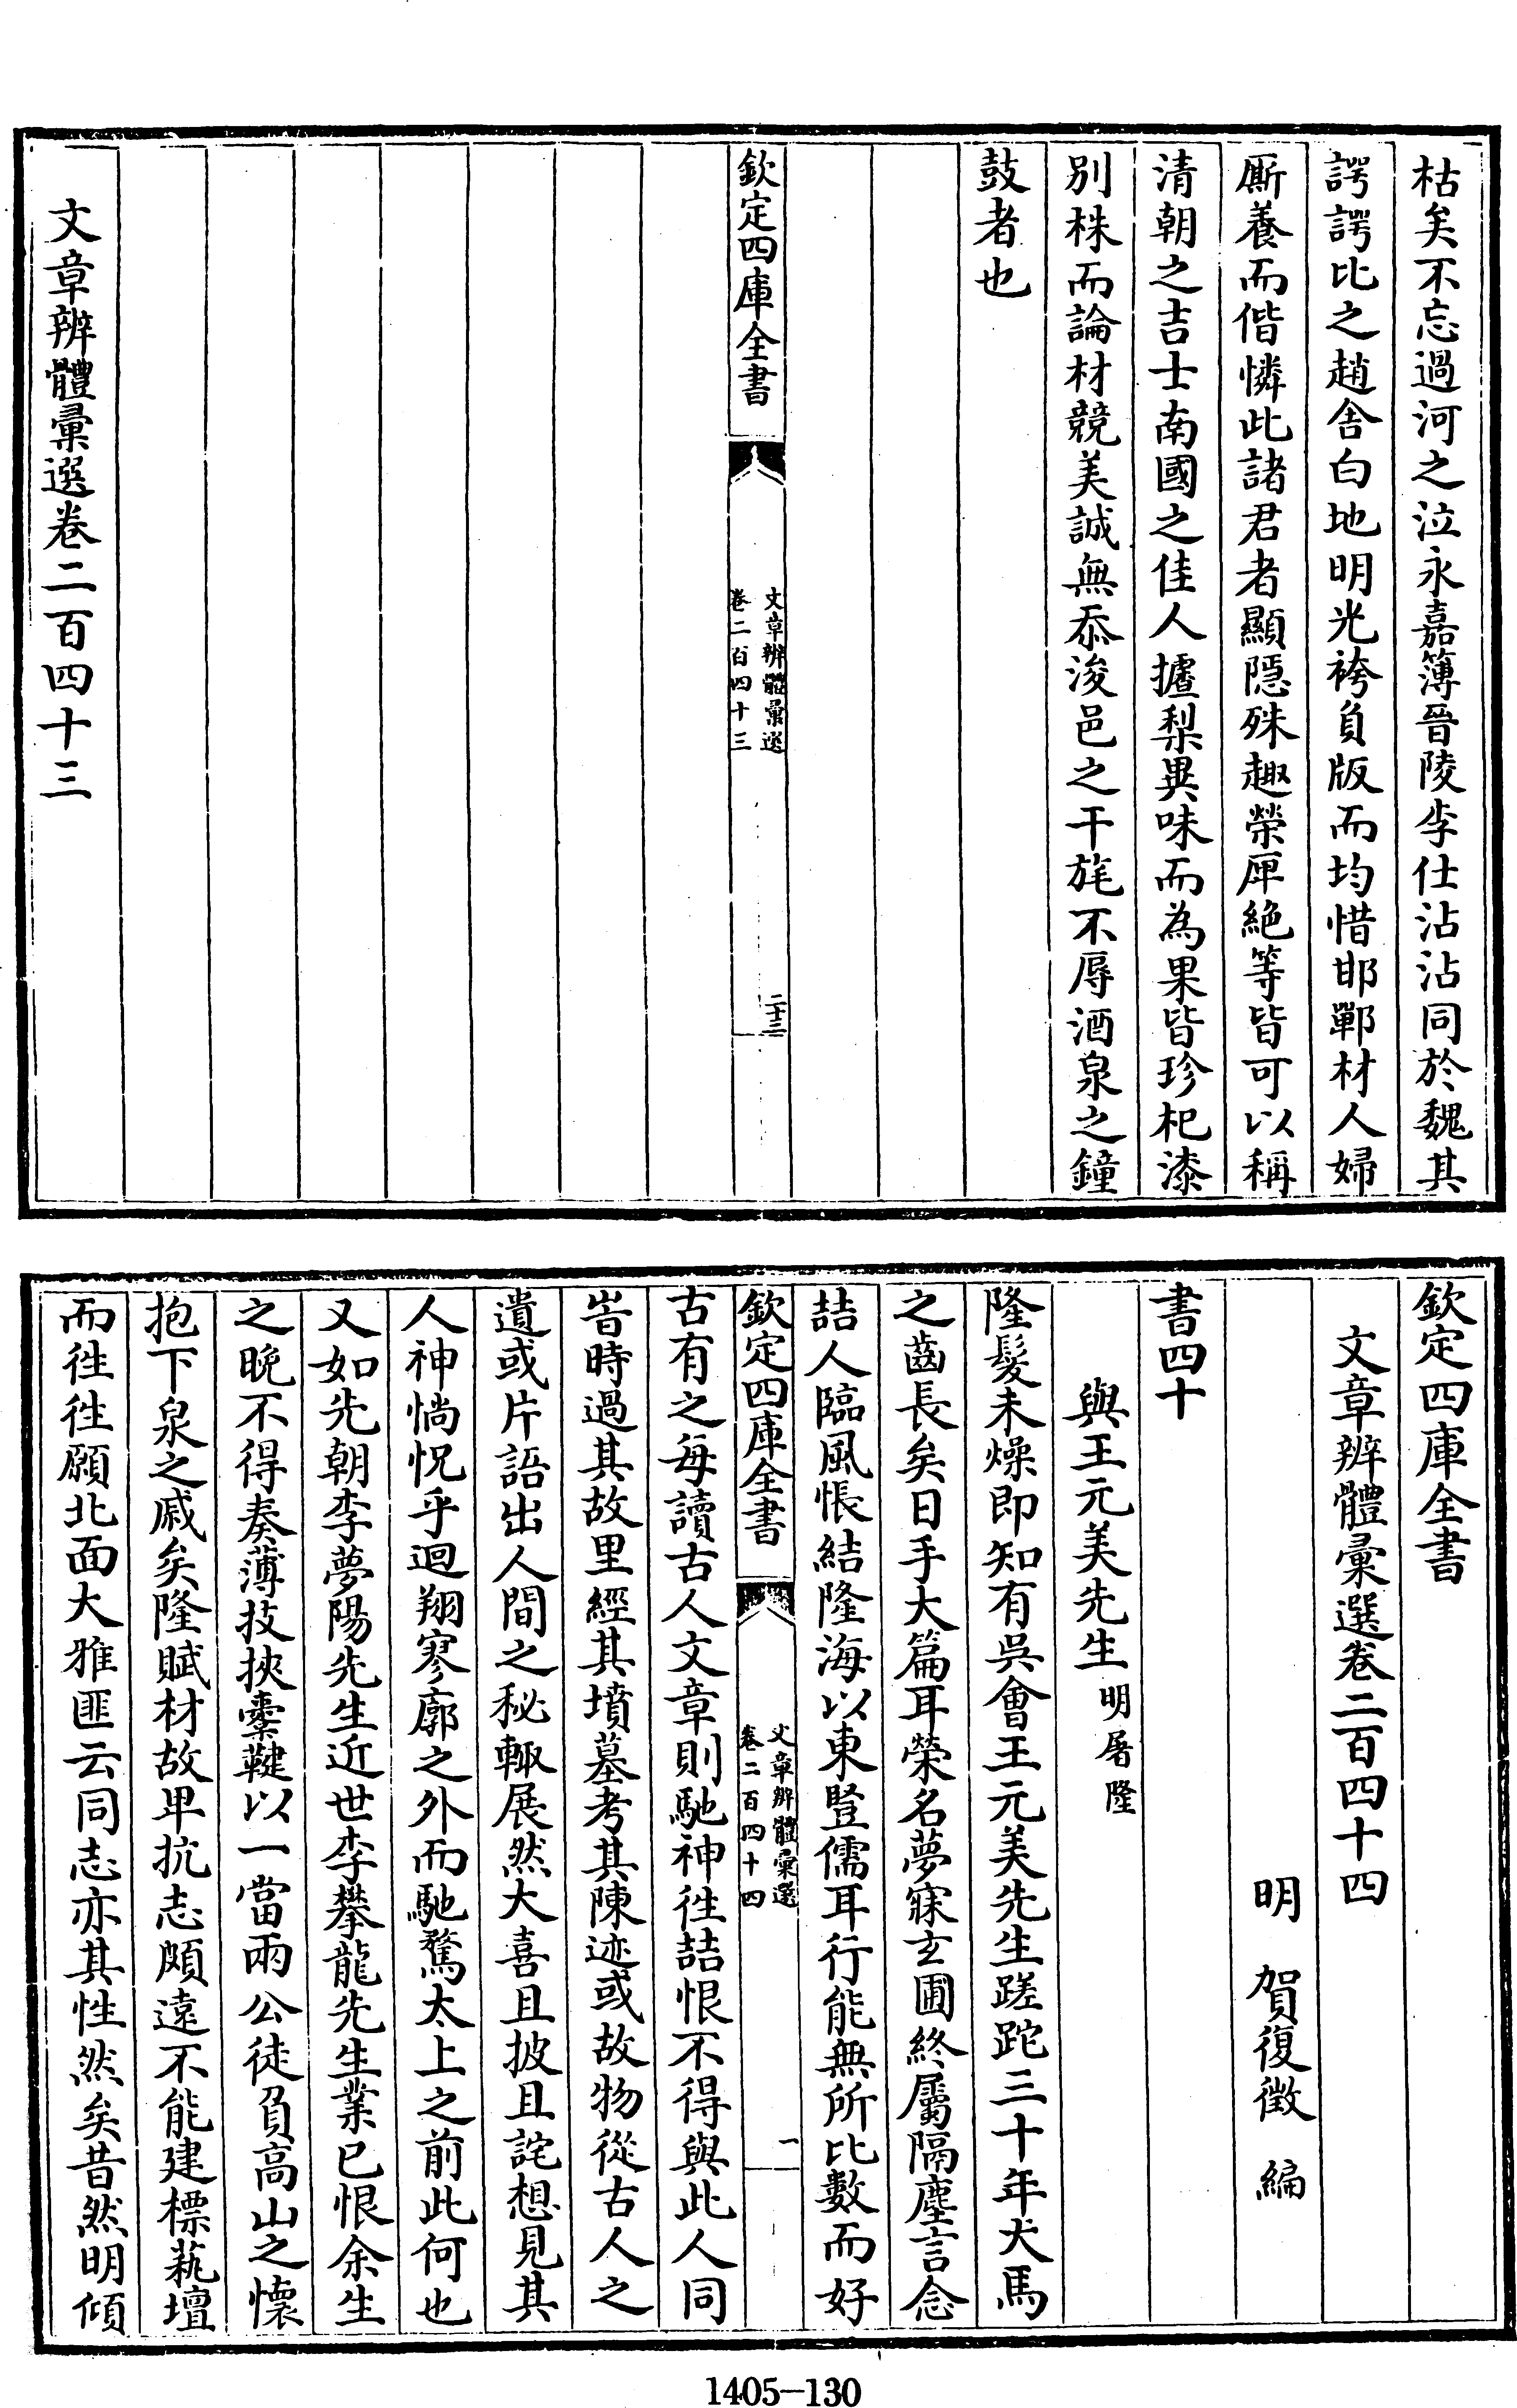 枯矣不忘過河之泣永嘉簿晉陵李仕沾沾同於魏其
諤諤比之趙舍白地明光袴負版而均惜邯鄲材人婦
厮養而偕憐此諸君者顯隠殊趣榮厓絶等皆可以稱
清朝之吉士南國之佳人攄梨異味而為果皆珍杞漆
别株而論材競美誠無忝浚邑之干旄不辱酒泉之鐘
鼓者也
欽定四庫全書
文章辨體彙選
卷二百四十三
二十三
文章辨體彙選卷二百四十三
欽定四庫全書
文章辨體彙選卷二百四十四
明 賀復徴 編
書四十
與王元美先生 明屠隆
隆髮未燥即知有吳會王元美先生蹉跎三十年犬馬
之齒長矣日手大篇耳榮名夢寐玄圃終屬隔塵言念
喆人臨風悵結隆海以東豎儒耳行能無所比數而好
欽定四庫全書
文章辨體彙選
卷二百四十四
一
古有之每讀古人文章則馳神往喆恨不得與此人同
旹時過其故里經其墳墓考其陳迹或故物從古人之
遺或片語出人間之秘輙展然大喜且披且詫想見其
人神惝怳乎迴翔寥廓之外而馳騖太上之前此何也
又如先朝李夢陽先生近世李攀龍先生業已恨余生
之晚不得奏薄技挾櫜鞬以一當兩公徒負高山之懷
抱下泉之戚矣隆賦材故卑抗志頗遠不能建標蓺壇
而徃徃願北面大雅匪云同志亦其性然矣昔然明傾
1405—130